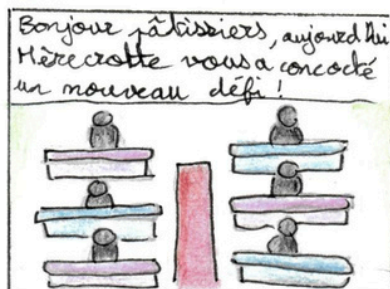 Bonjour pâtissiers, aujourd'hui
Mèrecrotte vous a concocté
un nouveau défi !